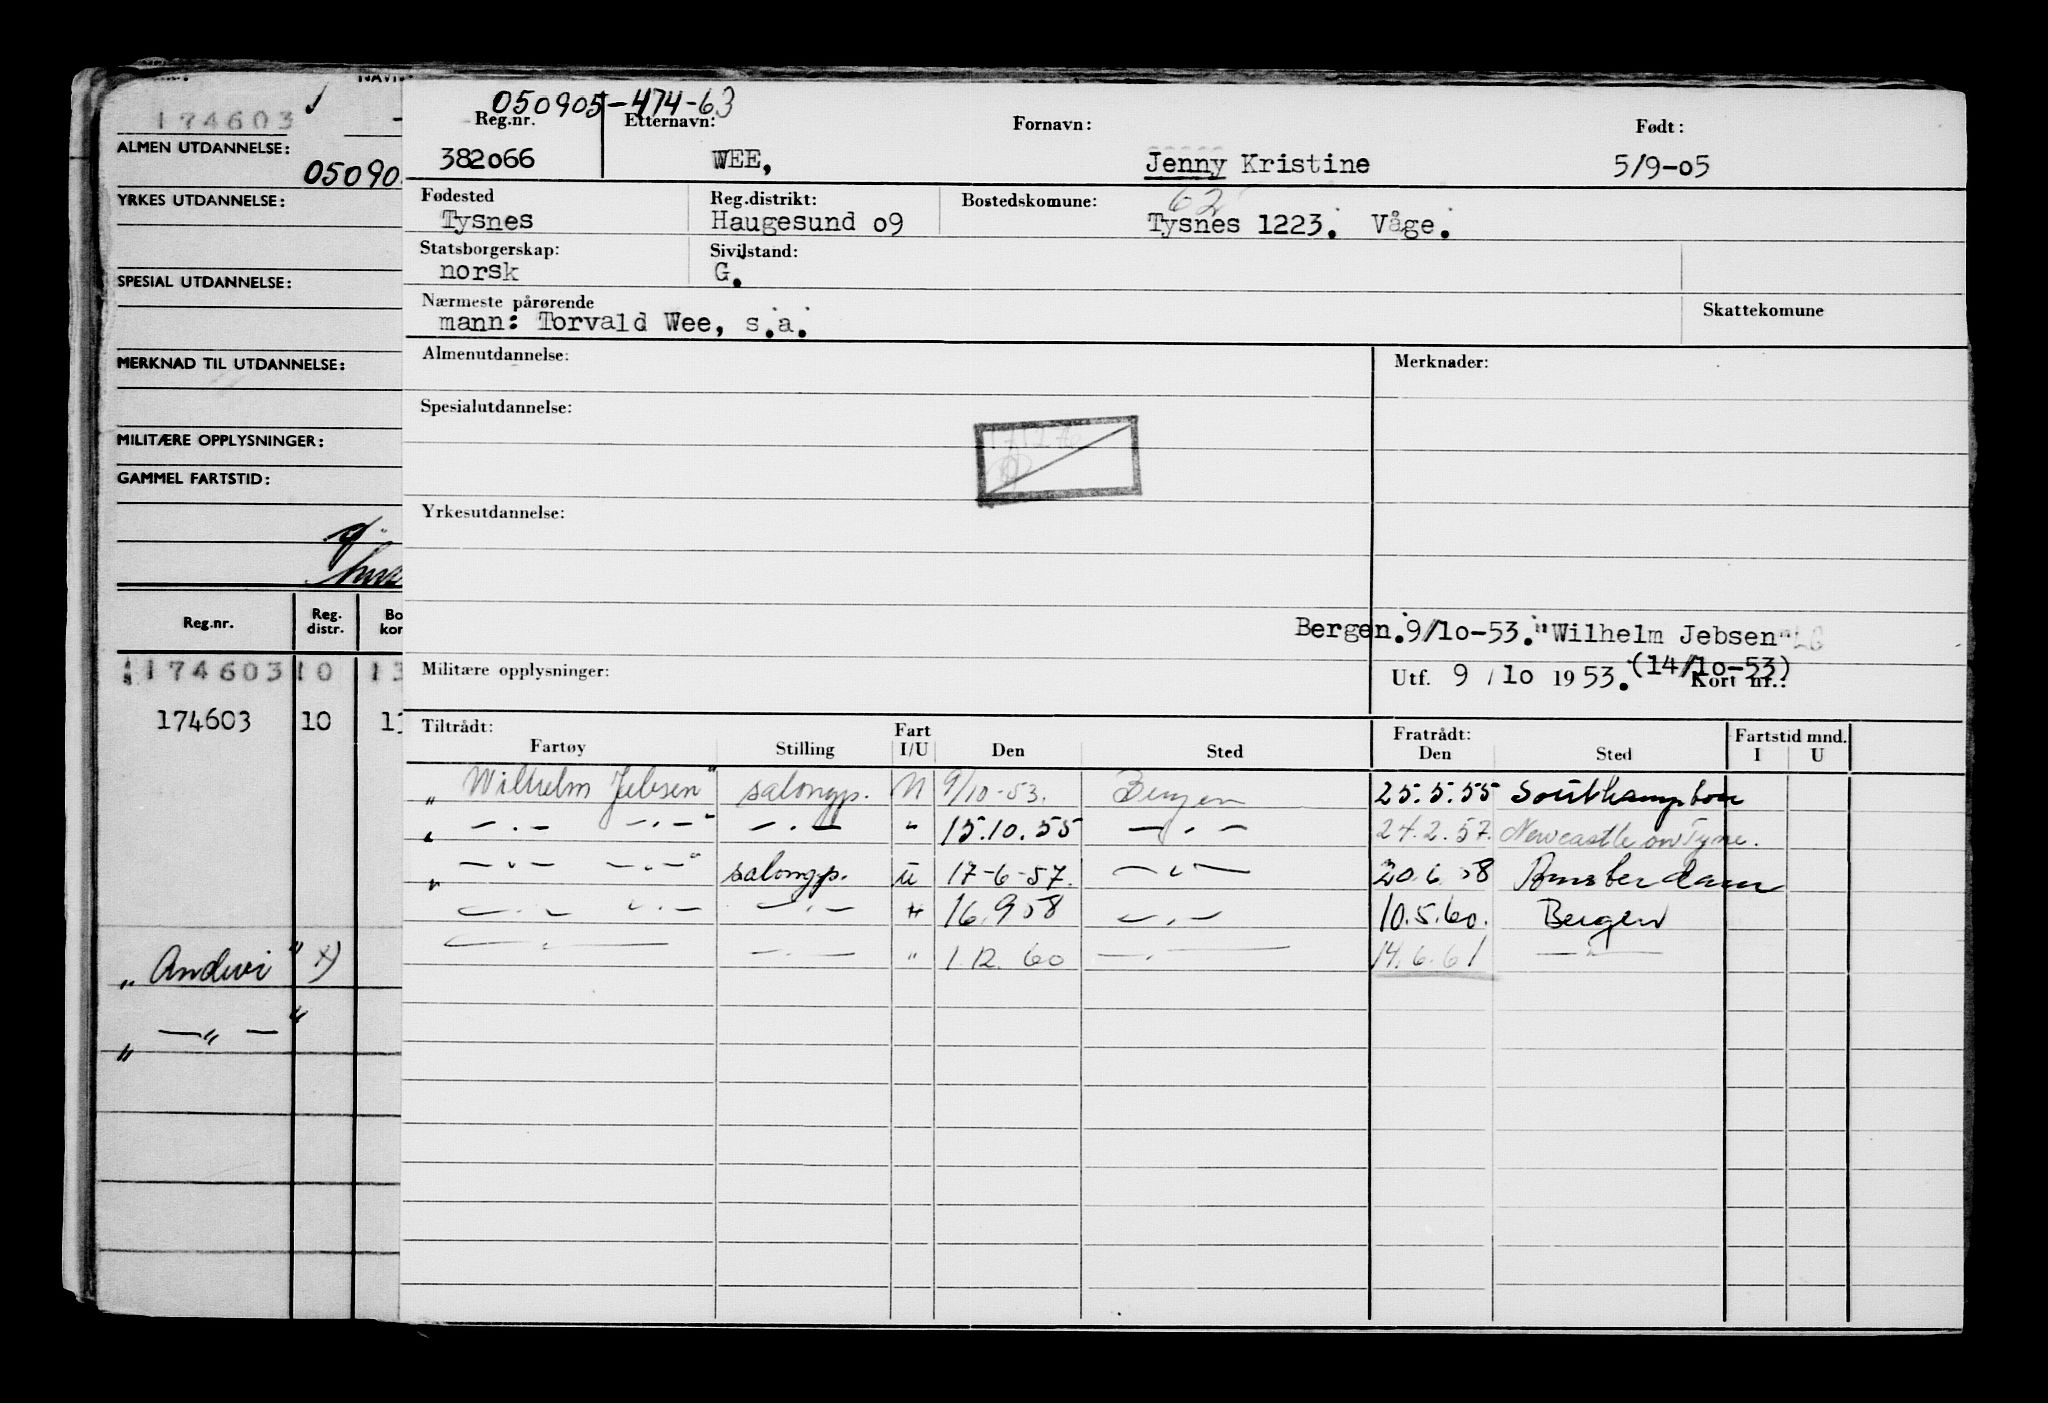 174603
ALMEN UTDANNELSE:
05090
YRKES UTDANNELSE:
SPESIAL UTDANNELSE:
MERKNAD TIL UTDANNELSE:
MILITÆRE OPPLYSNINGER:
GAMMEL FARTSTID:
Reg.nr. Reg. distr. Bo kon
174603 10 13
174603 10 11
„ Andwi " x)
„ —„— "
050905-474-63
Reg.nr. Etternavn: Fornavn: Født:
382066 WEE, Jenny Kristine 5/9-05
Fødested Reg.distrikt: Bostedskomune: 62
Tysnes Haugesund o9 Tysnes 1223. Våge.
Statsborgerskap: Sivilstand:
norsk G.
Nærmeste pårørende Skattekomune
mann: Torvald Wee, s.a.
Almenutdannelse: Merknader:
Spesialutdannelse:
Yrkesutdannelse:
Bergen.9/10-53."Wilhelm Jebsen"
Militære opplysninger: Utf. 9 / 10 1953.(14/10-53) Kort nr.:
Tiltrådt: Fart Fratrådt: Fartstid mnd.
Fartøy Stilling I/U Den Sted Den Sted I U
„ Wilhelm Jebsen" salongp. U 9/10-53. Bergen 25.5.55 Southampton
„ —.— —.—" —.— " 15.10.55 —.— 24.2.57. Newcastle on Tyne.
„ —.— —.—" salongp. u 17-6-57. —„— 20.6.58 Amsterdam
—.— —.— —.— " 16.9.58 —.— 10.5.60. Bergen
—„— —.— " 1.12.60 —.— 14.6.61 —„—